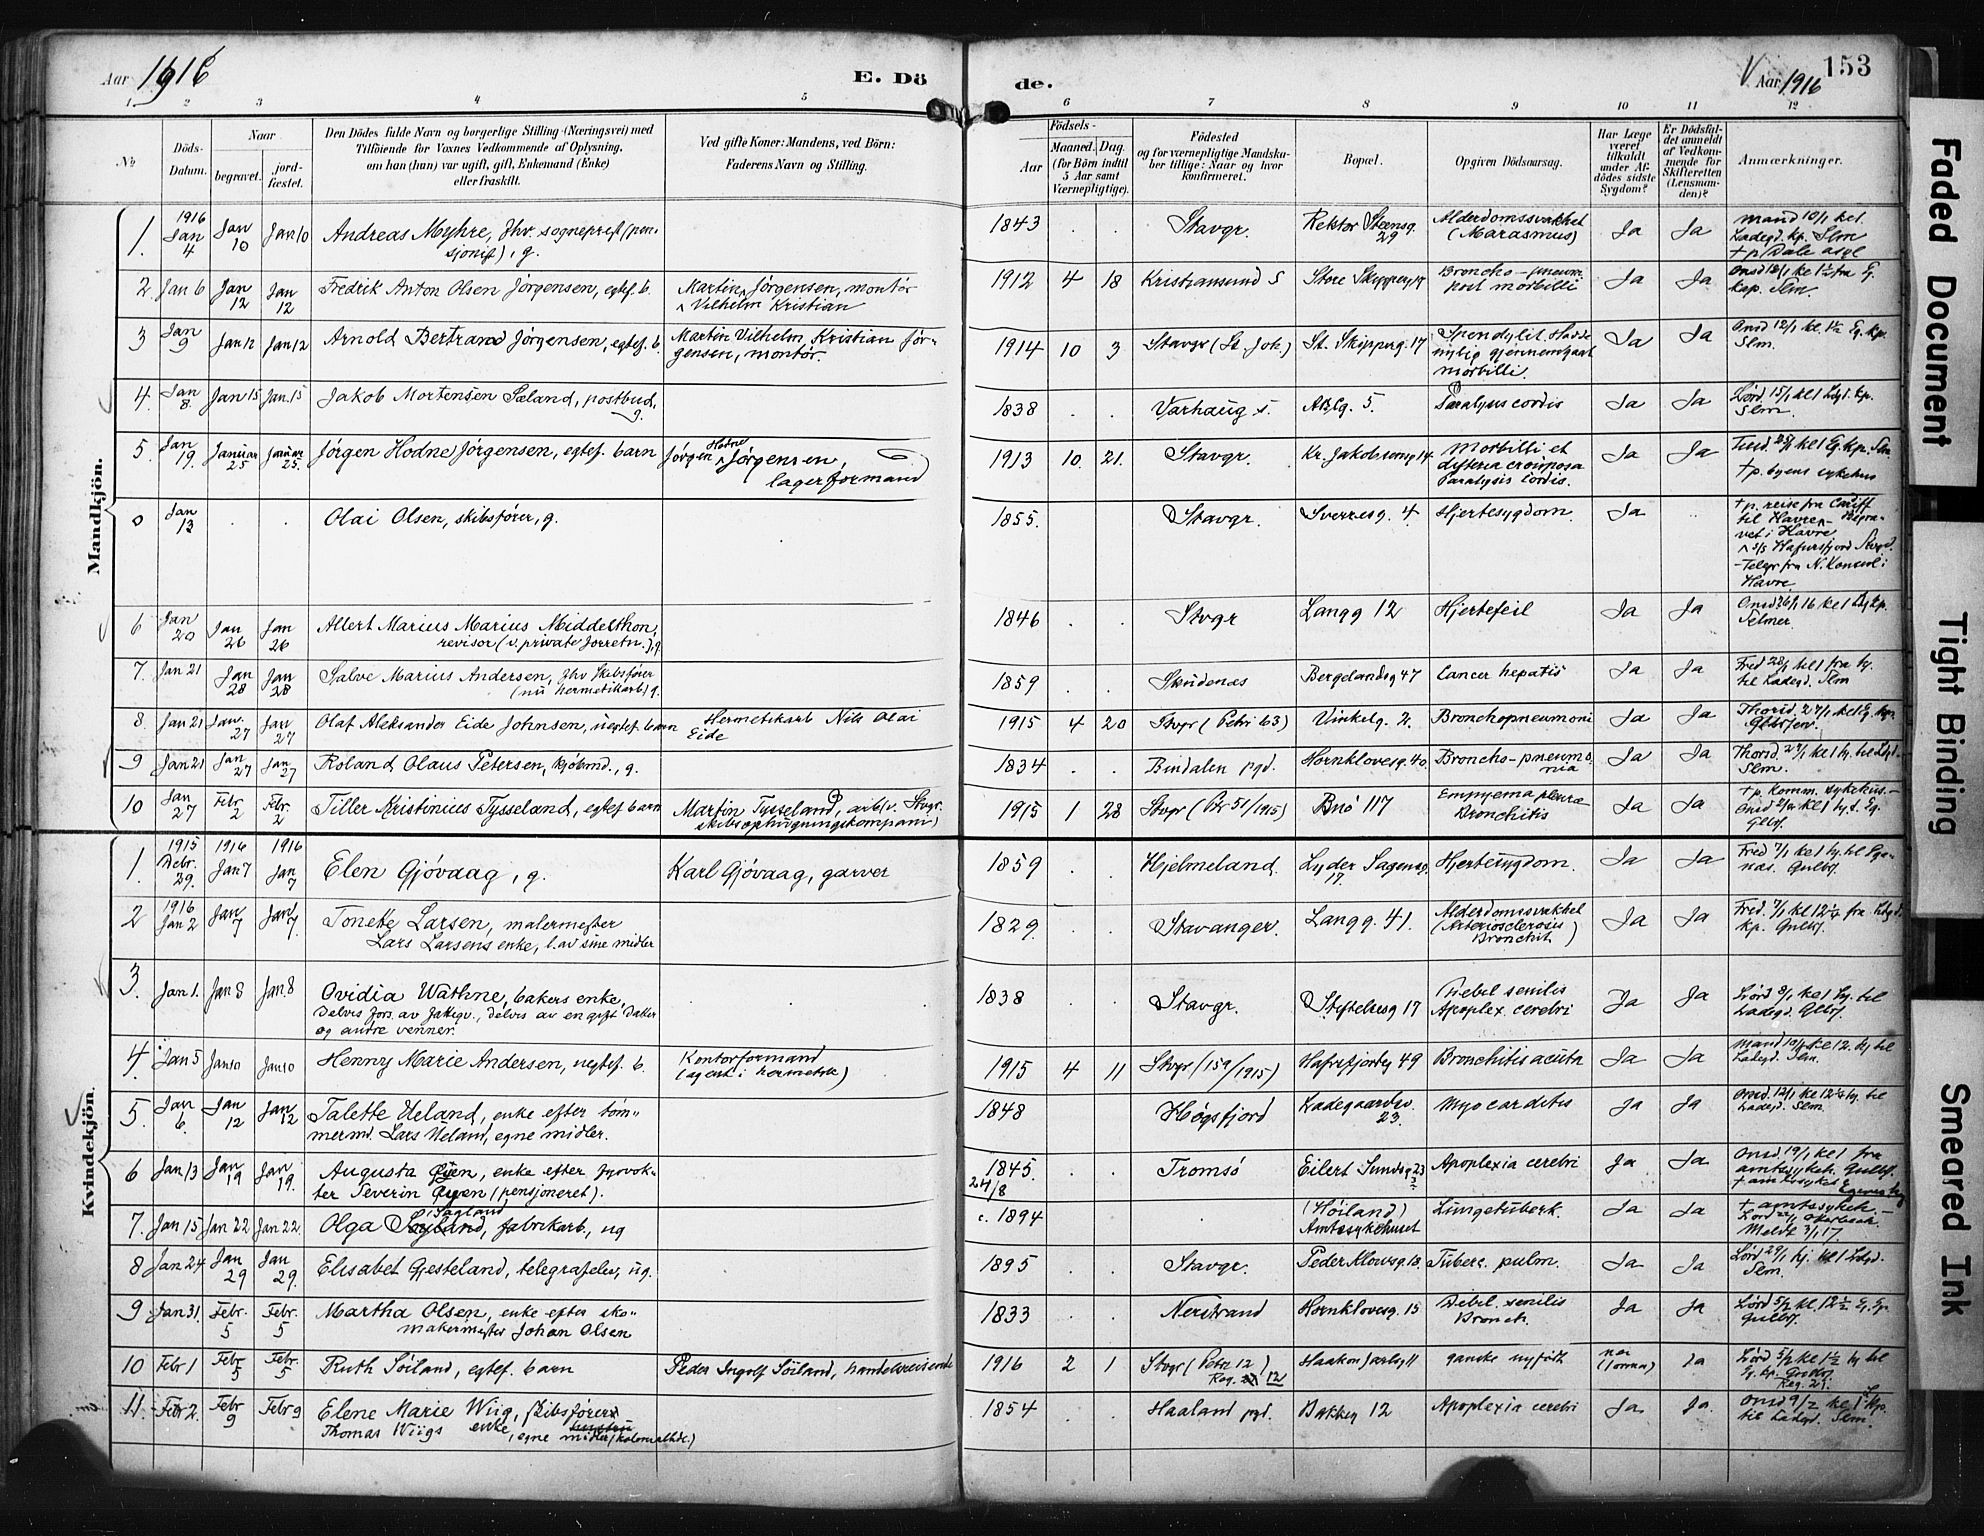 Aar 1916
E. Dö
de.
Aar 1916
153
1. 2 3 4 5 6 7 8 9 10 11 12
No
Döds-Datum.
Naar
begravet.
jord-fæstet.
Den Dödes fulde Navn og borgerlige Stilling (Næringsvei) med
Tilföiende for Voxnes Vedkommende af Oplysning,
om han (hun) var ugift, gift, Enkemand (Enke)
eller fraskilt.
Ved gifte Koner: Mandens, ved Börn:
Faderens Navn og Stilling.
Födsels-
Aar
Maaned.
Dag.
(for Börn indtil
5 Aar samt
Værnepligtige).
Födested
og for værnepligtige Mandska-
ber tillige: Naar og hvor
konfirmeret.
Bopæl.
Opgiven Dödsaarsag.
Har Læge
været
tilkaldt
under Af-
dödes sidste
Sygdom?
Er Dödsfal-
det anmeldt
af Vedkom-
mende for
Skifteretten
(Lensman-
den)?
Anmærkninger.
Mandkjön.
1. 1916 Jan 4 Jan 10 Jan 10 Andreas Myhre, fhv. sogneprest (pen-
sjonist), g. 1843 . . Stavgr. Rektor Steensg. 29 Alderdomssvakhet (Marasmus) Ja Ja Mand 10/1 kl 1. Ladegd. kp. Slm
2 Jan 6 Jan 12 Jan 12 Fredrik Anton Olsen Jörgensen, egtef. b. Martin Jörgensen, montör
Vilhelm Kristian 1912 4 18 Kristiansund S Store Skipperg 17 Broncho-pneum. post morbilli Ja Ja Onsd 12/1 kl 1½ fra Eg. kap. Slm.
3 Jan 9 Jan 12 Jan 12 Arnold Bertrand Jörgensen, egtef. b. Martin Vilhelm Kristian Jör-
gensen, montör. 1914 10 3 Stavgr (St. Joh.) St. Skipperg. 17 Spondylit. Havde nylig gjennemgaat morbilli. Ja Ja Onsd 12/1 kl 1½ Eg. kp. Slm.
4. Jan 8. Jan 15 Jan. 15 Jakob Mortensen Sæland, postbud, g. 1838 . . Varhaug s. 5. Paralysis cordis Ja Ja Lörd. 15/1 kl 1 Ldgd. kp. Slm.
5. Jan 19. Januar 25 Januar 25. Jörgen Hodne Jörgensen, egtef. barn Jörgen Hodne Jörgensen,
lagerformand 1913 10. 21. Stavgr. Kr. Jakobsensg 14 Morbilli et difteria crouposa Paralysis cordis. Ja Ja Tirsd. 25/1 kl 1 Eg. kp. Slm
+ p. byens sykehus
0 Jan 13 . . Olai Olsen, skibsförer, g. 1855. Stavgr. Sverresg. 4 Hjertesygdom. Ja .. + p. reise fra Cardiff
til Havre - Begra-
vet i Havre
S/S Hafursfjord Stvgr.
- Telegr fra N. Konsul i
Havre
6 Jan 20 Jan 26 Jan 26 Allert Marius Marius Middelthon,
revisor (v. private forretn.), g 1846 . . Stvgr Langg 12 Hjertefeil Ja Ja Onsd 26/1 16 kl 1 Eg kp. Selmer
7. Jan 21 Jan 28 Jan 28 Salve Marius Andersen, fhv Skibsförer
(nu hermetikarb) g. 1859 . . Skudenes Bergelandsg 47 Cancer hepatis Ja Ja Fred 28/1 kl 1 fra hj. til Ladegd. Slm
8. Jan 21 Jan. 27 Jan 27 Olaf Aleksander Eide Johnsen, uegtef. barn Hermetikarb Nils Olai
Eide 1915 4 20 Stvgr (Petri 63) Vinkelg. 2. Bronchopneumoni Ja Ja Thorsd. 27/1 kl 1 Eg. kpn
9 Jan 21 Jan 27 Jan 27 Roland Olaus Petersen, kjöbmd., g. 1834 . . Bindalen pgd. Hornklovesg. 40 Broncho-pneumonia Ja Ja Thorsd. 27/1 kl 1 hj. til Ldgd. Slm.
10 Jan 27 Febr 2 Febr. 2 Tiller Kristinius Tysseland, egtef barn Martin Tysseland, arb. v. Stvgr.
skibsophugningskompani) 1915 1 28 Stvgr (Ptr 51/1915) Buö 117 Empyema pleuræ Bronchitis Ja Ja + p. komm. sykehus. -
Kvindekjön.
1. 1915 Debr. 29. 1916 Jan 7 1916 Jan 7 Elen Gjövaag, g. Karl Gjövaag, garver 1859 . . Hjelmeland. Lyder Sagensg. 17. Hjertesygdom. Ja Ja Fred 7/1 kl 1 hj. til Ege-
næs. Gulbj.
2 1916 Jan 2 Jan 7 Jan 7. Tonette Larsen, malermester
Lars Larsens enke, l. av sine midler 1829. . . Stavanger. Langg. 41. Alderdomssvakhet (Arteriosclerosis Bronchit) Ja Ja Fred. 7/1 kl 12½ fra Ldgd. kp. Gulbj.
3. Jan 1. Jan 8 Jan. 8 Ovidia Wathne, bakers enke,
Delvis fors. av fattigv., delvis av en gift datter
og andre venner. 1838 . . Stavgr. Stiftelsesg 17 Debil senilis Apoplex. cerebri Ja Ja Lörd 8/1 kl 1 hj. til Ladegd. Glbj.
4. Jan 5 Jan 10 Jan 10 Henny Marie Andersen, uegtef. b. Kontorformand
(agent i hermetik) 1915 4 11 Stvgr (159/1915) Hafrsfjordsg 49 Bronchitis acuta Ja Ja Mand 10/1 kl 12. hj til Ladegd. Slm.
5. Jan 6. Jan 12 Jan 12 Talette Ueland, enke efter töm-
mermd. Lars Ueland, egne midler. 1848 . . Högsfjord Ladegaardsv. 23. Myocarditis Ja Ja Onsd. 12/1 kl 12½ hj. til Ladegd. Slm.
6 Jan 13 Jan 19 Jan 19. Augusta Öyen, enke efter fyrvok-
ter Severin Öyen (pensjoneret). 1845 24/8 . . Tromsö Eilert Sundsg 23 Apoplexia cerebri Ja Ja Onsd. 19/1 kl 1 fra amtssykeh. Gulbj.
7. Jan 15 Jan 22 Jan 22. Olga Søyland, fabrikarb., ug c. 1894 . (Höiland) Amtssykehuset Lungetuberk. Ja Ja + amtssykeh. -
8 Jan 24 Jan 29 Jan 29. Elisabet Gjesteland, telegrafelev, ug. 1895 . . Stavgr. Peder Klowsg. 18. Tuberc. pulm. Ja Ja Lörd 29/1 hj. kl 1 Ldgd. Slm.
9 Jan 31. Febr. 5 Febr. 5 Martha Olsen, enke efter sko-
makermester Johan Olsen 1833 . . Nerstrand Hornklovesg. 15 Debil. senilis Bronch. Ja Ja Lörd 5/2 kl. 12½ Eg. kp. Gulbj.
10 Febr 1 Febr 5 Febr. 5 Ruth Söiland, egtef. barn Peder Ingolf Söiland, handelsreisende 1916 2 1 Stvgr (Petri 12) Reg. 12 Haakon Jarlsg 11 ganske nyfödt nei (Jorma) Ja Lörd 5/2 kl 1½ hj til Eg. kp. Gulbj. Reg. 21.
11. Febr 2. Febr 9 Febr 9 Elene Marie Wiig, skibsförer
Thomas Wiigs enke, egne midler (kolonialhdl.) 1854 . . Haaland pgd. Bakkeg 12 Apoplexia cerebri Ja. Ja. Onsd 9/2 kl 1 kp. til Ladegd. Slm.
Faded Document
Tight Binding
Smeared Ink